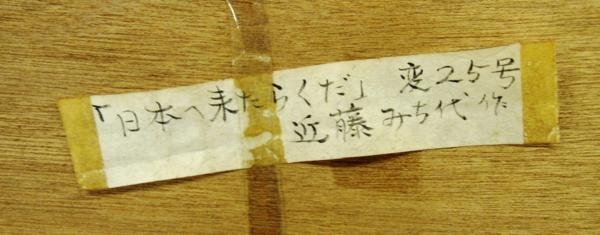 「日本へ来たらくだ」 変25号
近藤みち代 作